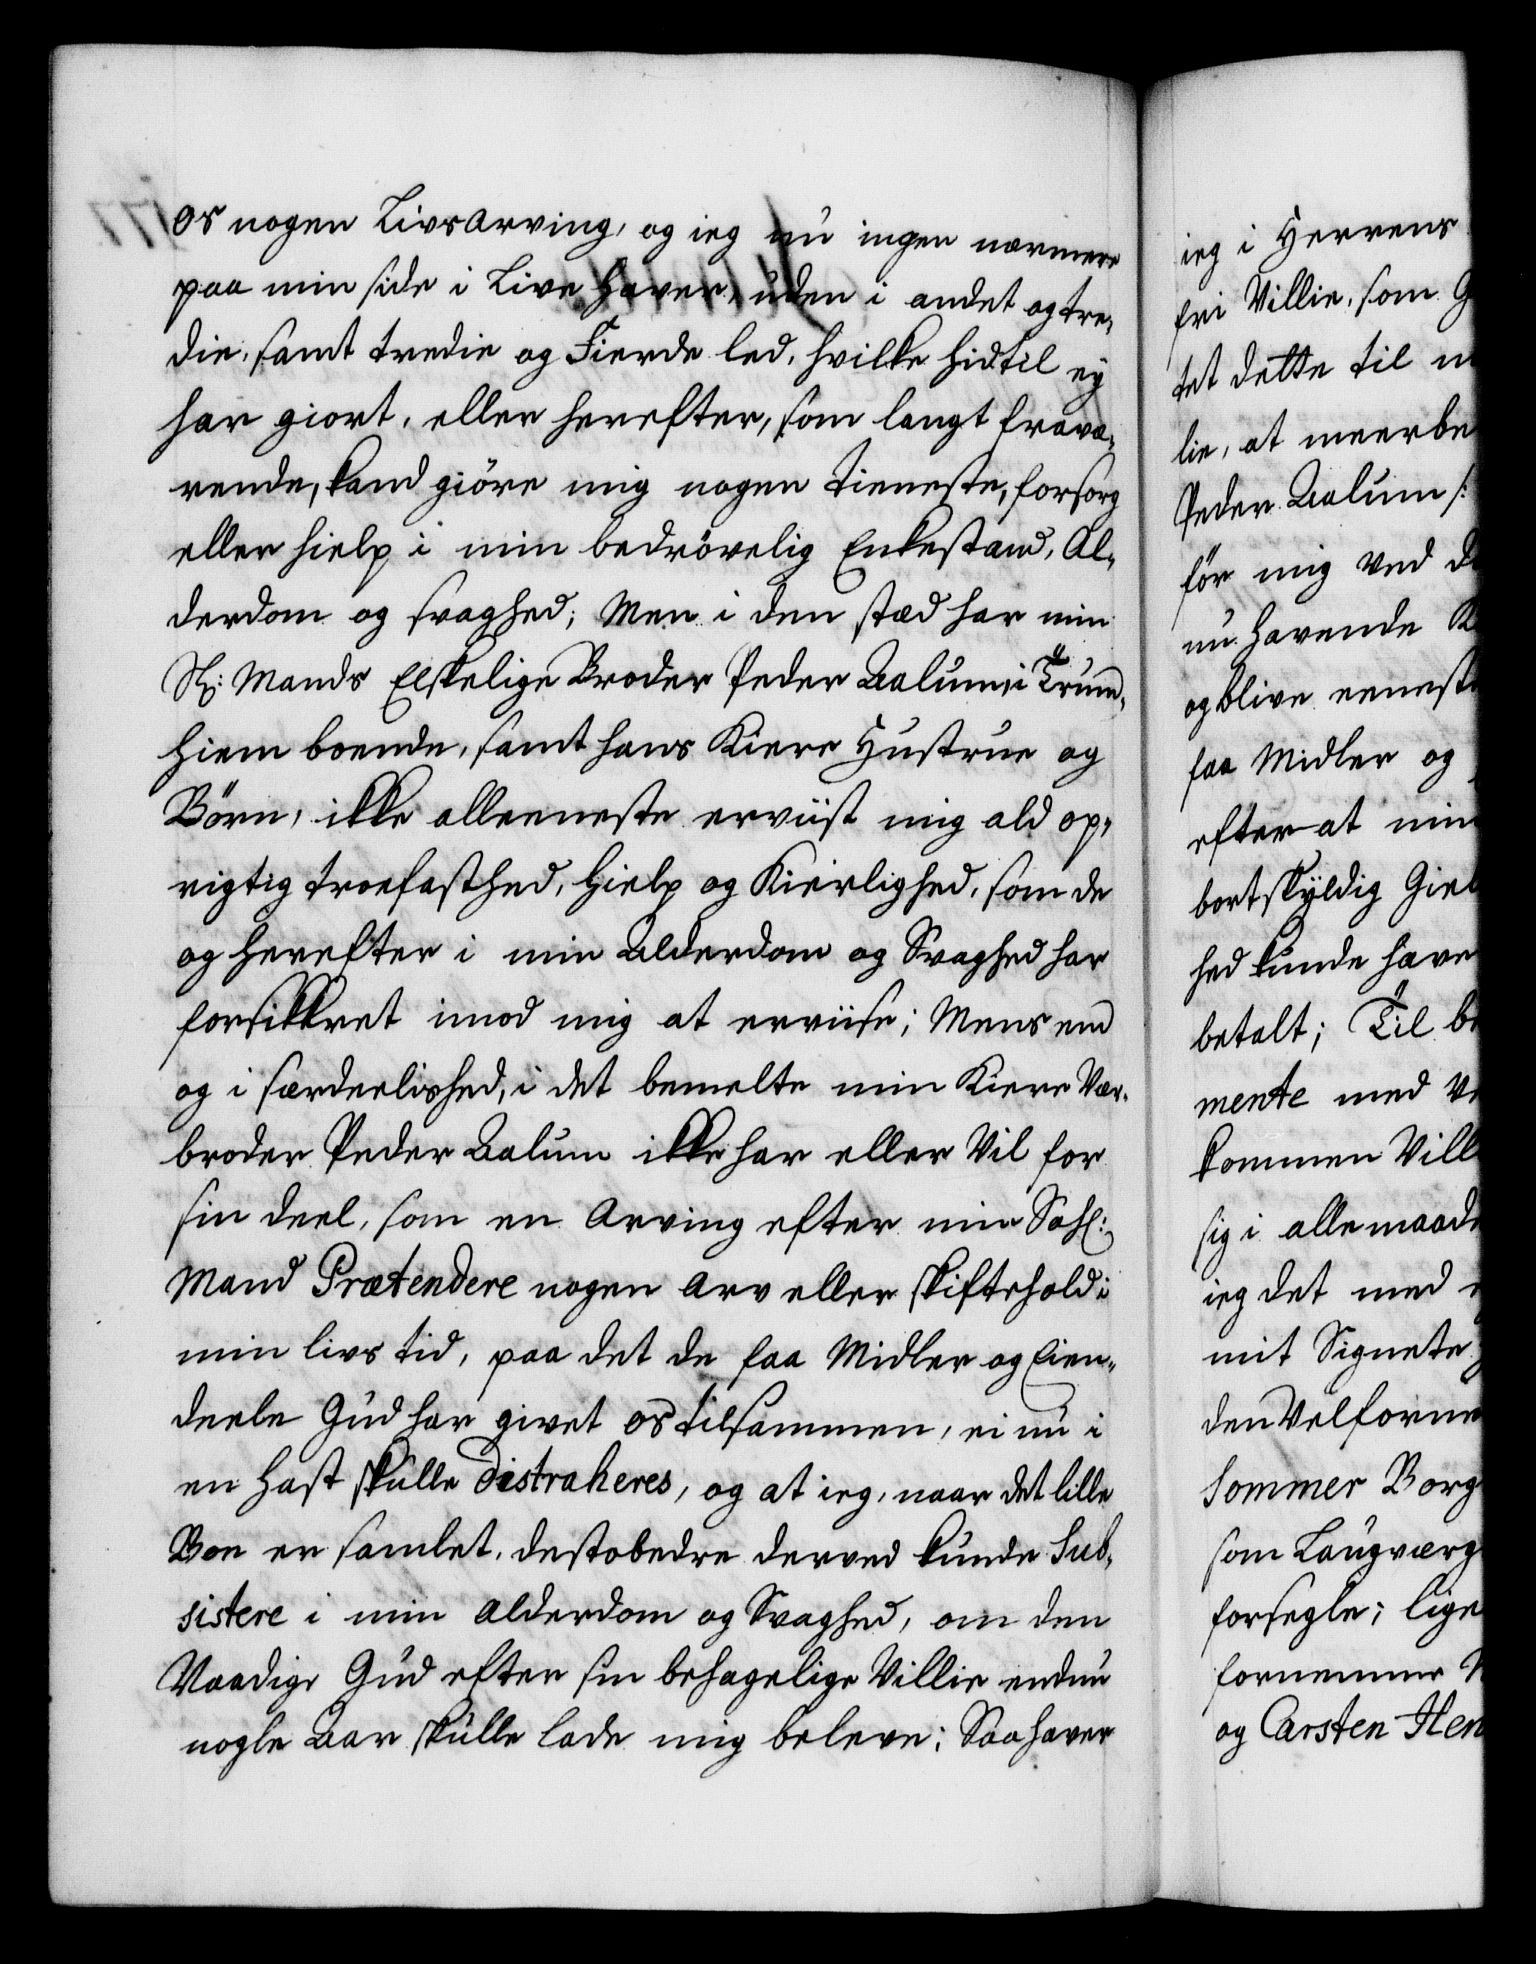 os nogen Livsarving, og ieg nu ingen nærmere
paa min side i Live haver, uden i andet og tre-
die, samt tredie og Fierde led, hvilke hidtil ey
har giort, eller herefter, som langt fravæ-
rende, kand giöre mig nogen tieneste, forsorg
eller hielp i min bedrövelig Enkestand, Al-
derdom og svaghed; Men i den stæd har min
Sl: Mands Elskelige Broder Peder Aalum i Trund-
hiem boende, samt hans Kiere Hustrue og
Börn, ikke alleeneste erviist mig ald op-
rigtig troefasthed, hielp og Kierlighed, som de
og herefter i min Alderdom og Svaghed har
forsikkret imod mig at erviise; Mens end
og i særdeelished, i det bemelte min Kiere Vær-
broder Peder Aalum ikke har eller Vil for
sin deel, som en Arving efter min Sahl:
Mand Prætendere nogen Arv eller skiftehold i
min livs tid, paa det de faa Midler og Eien-
deele Gud har givet os tilsammen, ei nu i
en hast skulle distraheres, og at ieg, naar det lille
Boe er samlet, destobedre derved kunde Sub-
sistere i min Alderdom og Svaghed, om den
Naadige Gud efter sin behagelige Villie endnu
nogle Aar skulle lade mig beleve; Saa haver
ieg i Herrens
fri Villie, som
tet dette til
lie, at meerbe
Peder Aalum /:
för mig ved
nu havende
og blive eeneste
faa Midler og
efter at min
bortskyldig
hed kunde have
betalt; Til
mente med
kommen Vill
sig i alle maade
ieg det med
mit Signete
den Velforne
Sommer Borg
som Laugværg
forsegle; lige
fornemme
og Carsten Hen